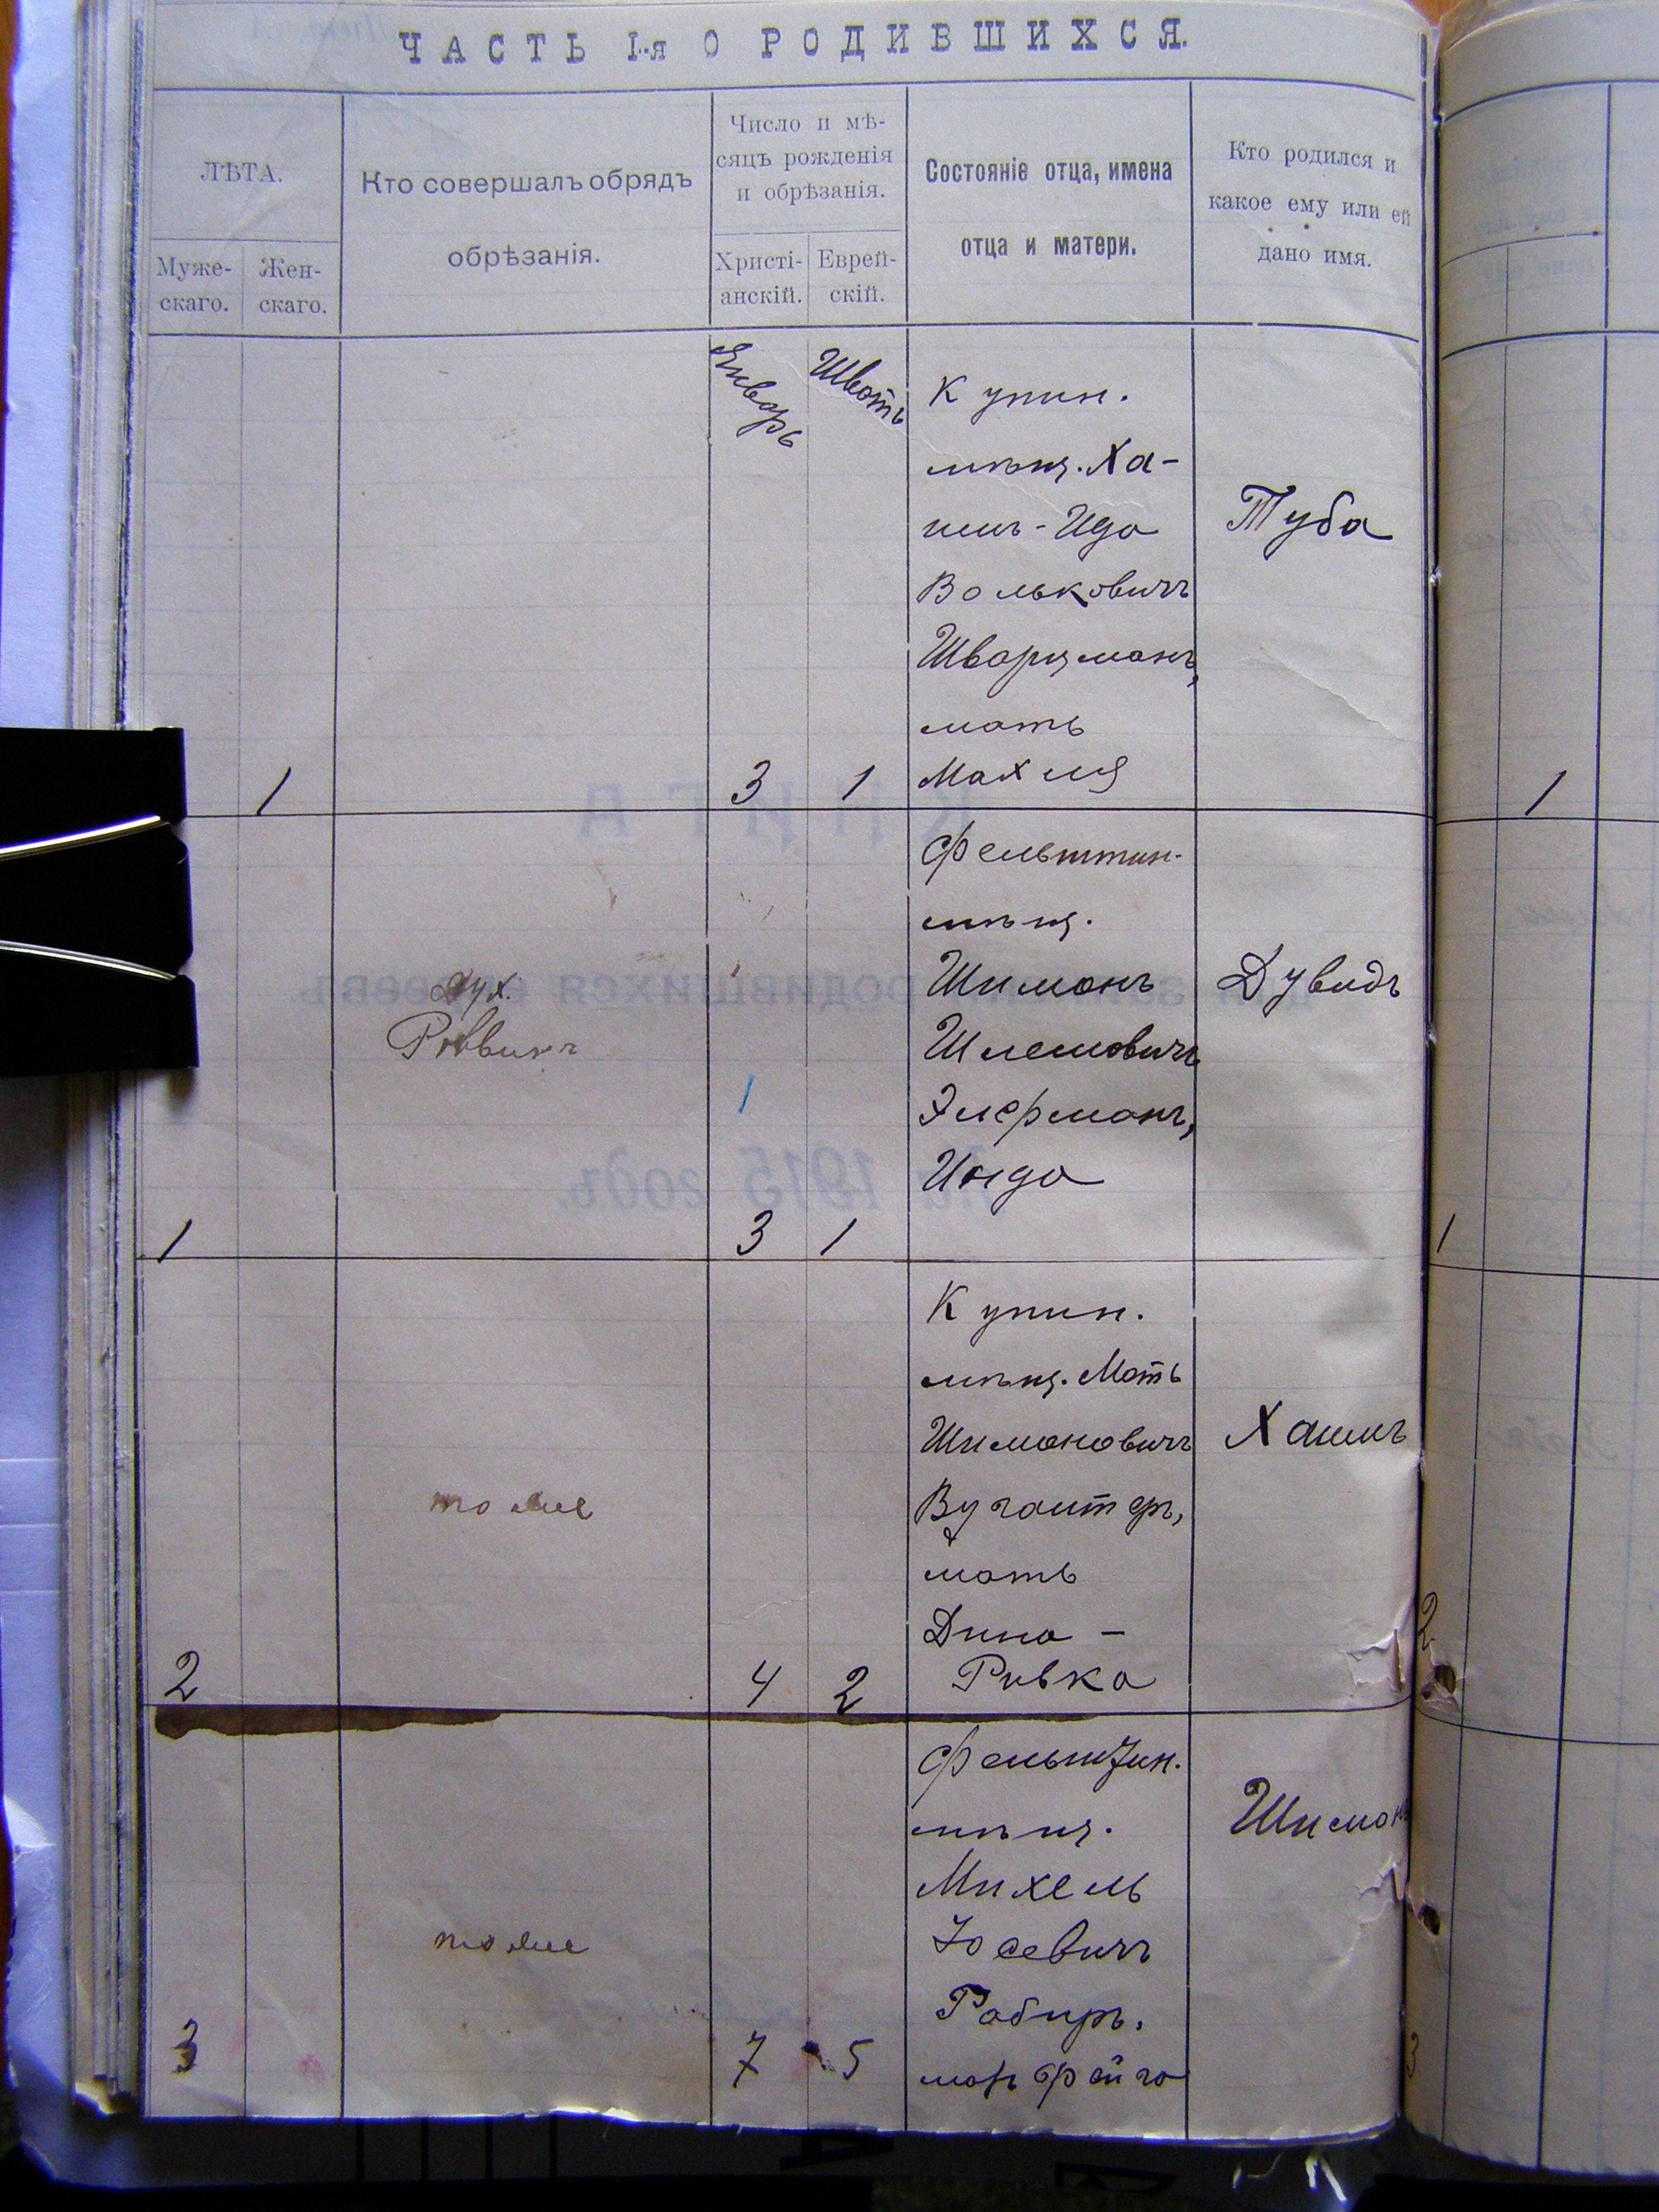 ЧАСТЬ I-я О РОДИВШИХСЯ.
ЛѢТА.
Муже-
скаго.
Жен-
скаго.
Кто совершалъ обрядъ
обрѣзанія.
Число и мѣ-
сяцъ рожденія
и обрѣзанія.
Христі-
анскій.
Еврей-
скій.
Состояніе отца, имена
отца и матери.
Кто родился и
какое ему или ей
дано имя.
Январь
Шватъ
Купин.
мѣщ. Ха-
имъ-Ида
Вольковичъ
Шварцманъ,
мать
Махля
Туба
1
3
1
1
Фельштин.
мѣщ.
Шимонъ
Шлемовичъ
Элерманъ,
Инда
Дувидъ
Дух.
Раввинъ
1
1
3
1
1
Купин.
мѣщ. Моть
Шимоновичъ
Вугаитеръ,
мать
Дина-
Ривка
Хаимъ
тоже
2
4
2
2
Фельштин.
мѣщ.
Михель
Іосевичъ
Рабиръ.
мать Фейга
Шимон
тоже
3
7
5
3
КНИГА
родившихся евреевъ
На 1915 годъ.